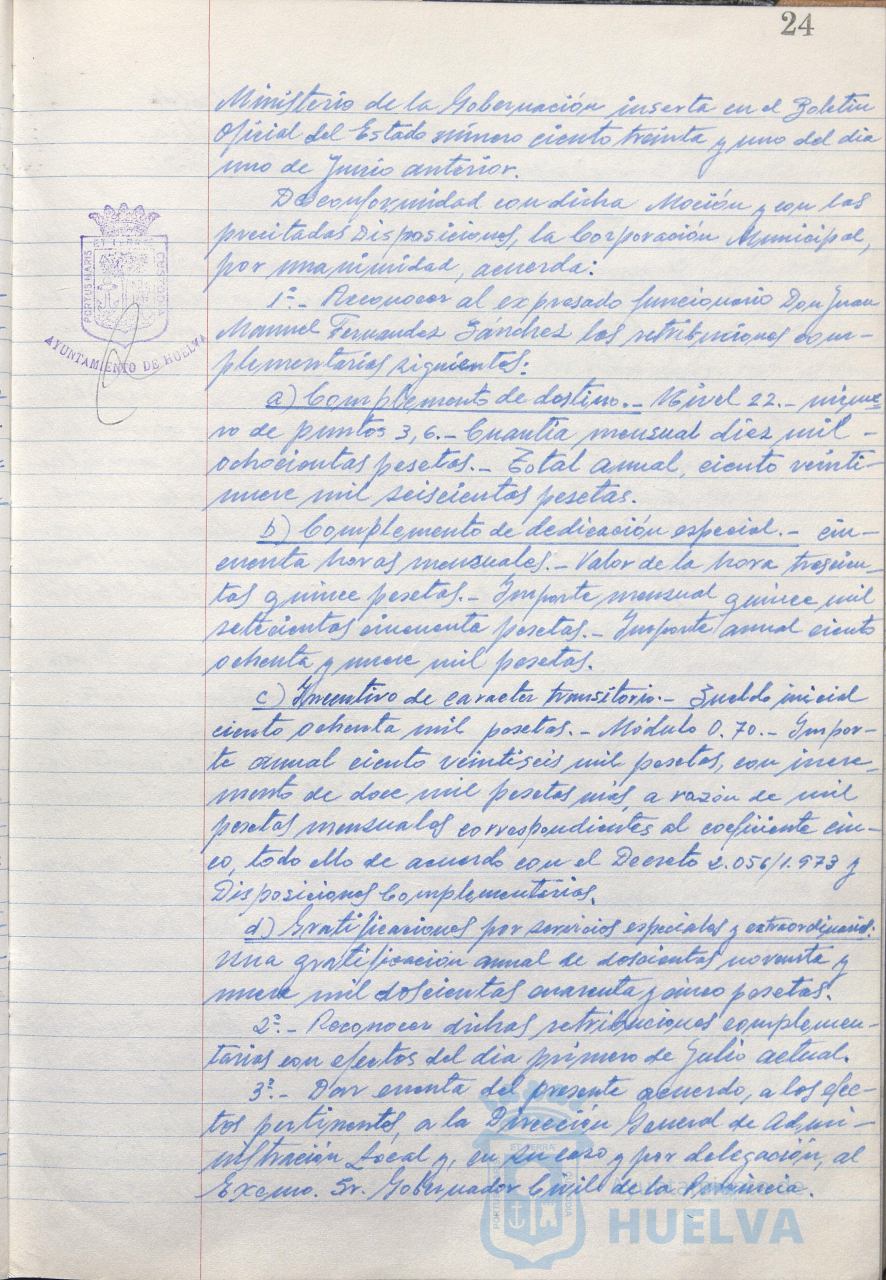 24
Ministerio de la Gobernación inserta en el Boletin
Oficial del Estado número ciento treinta y uno del dia
uno de Junio anterior.
De conformidad con dicha Moción y con las
precitadas Disposiciones, la Corporación Municipal,
por unanimidad, acuerda:
1º.- Reconocer al expresado funcionario Don Juan
Manuel Fernandez Sanchez las retribuciones com-
plementarias siguientes:
a) Complemento de destino.- Nivel 22.- núme-
ro de puntos 3,6.- Cuantia mensual diez mil -
ochocientas pesetas.- Total anual, ciento veinti-
nueve mil seiscientas pesetas.
b) Complemento de dedicación especial.- cin-
cuenta horas mensuales.- Valor de la hora trescien-
tas quince pesetas.- Importe mensual quince mil
setecientas cincuenta pesetas.- Importe anual ciento
ochenta y nueve mil pesetas.
c) Incentivo de caracter transitorio.- Sueldo inicial
ciento ochenta mil pesetas.- Módulo 0.70.- Impor-
te anual ciento veintiseis mil pesetas, con incre-
mento de doce mil pesetas más, a razón de mil
pesetas mensuales correspondientes al coeficiente cin-
co, todo ello de acuerdo con el Decreto 2.056/1.973 y
Disposiciones Complementarias.
d) Gratificaciones por servicios especiales y extraordinarios:
Una gratificación anual de doscientas noventa y
nueve mil doscientas cuarenta y cinco pesetas.
2º.- Reconocer dichas retribuciones complemen-
tarias con efectos del dia primero de Julio actual.
3º.- Dar cuenta del presente acuerdo, a los efec-
tos pertinentes, a la Dirección General de Admi-
nistración Local y, en su caso y por delegación, al
Excmo. Sr. Gobernador Civil de la Provincia.
PORTUS MARIS ET TERRAE CUSTODIA
AYUNTAMIENTO DE HUELVA
PORTUS MARIS ET TERRA CUSTODIA
HUELVA